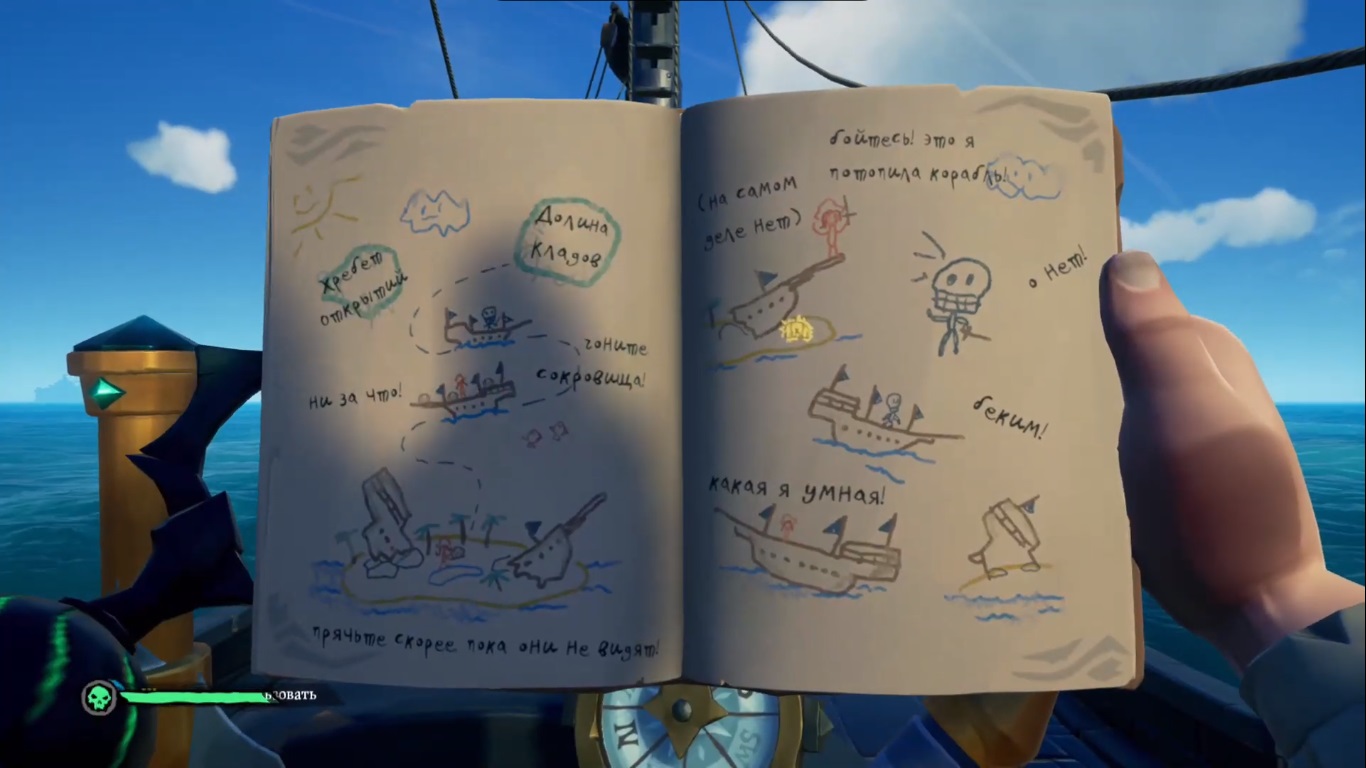 Долина
кладов
Хребет
открытий
гоните
сокровища!
ни за что!
прячьте скорее пока они не видят!
бойтесь! это я
потопила корабль!
(на самом
деле нет)
о нет!
бежим!
какая я умная!
N
SW
ьзовать